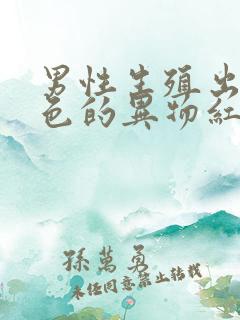 男性生殖出
色的異物紅
孫萬勇
未经同意禁止转载